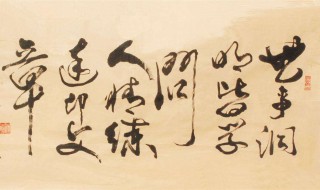 世事洞
明皆学
问
人情練
達即文
章